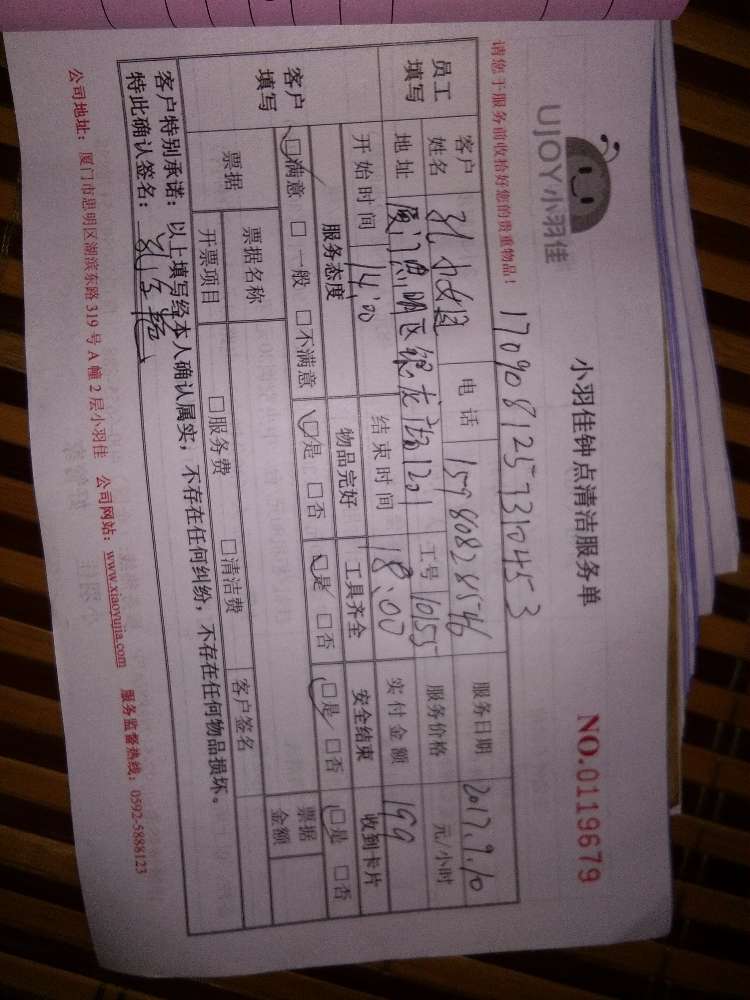 UJOY小羽佳
小羽佳钟点清洁服务单
NO.0119679
请您于服务前收拾好您的贵重物品!
员工填写
客户姓名 孔小姐 电话 15980828546 服务日期 2017.9.10
地址 厦门思明区银龙 1201 工号 1055 服务价格 元/小时
客户填写
开始时间 14:00 结束时间 18:00 实付金额 199
服务态度 物品完好 工具齐全 安全结束 收到卡片
☑满意 □一般 □不满意 ☑是 □否 ☑是 □否 ☑是 □否 ☑是 □否
票据 票据名称 票据金额
开票项目 □服务费 □清洁费 客户签名
客户特别承诺:以上填写经本人确认属实,不存在任何纠纷,不存在任何物品损坏。
特此确认签名:
公司地址:厦门市思明区湖滨东路319号A幢2层小羽佳 公司网站:www.xiaoyujia.com 服务监督热线:0592-5888123